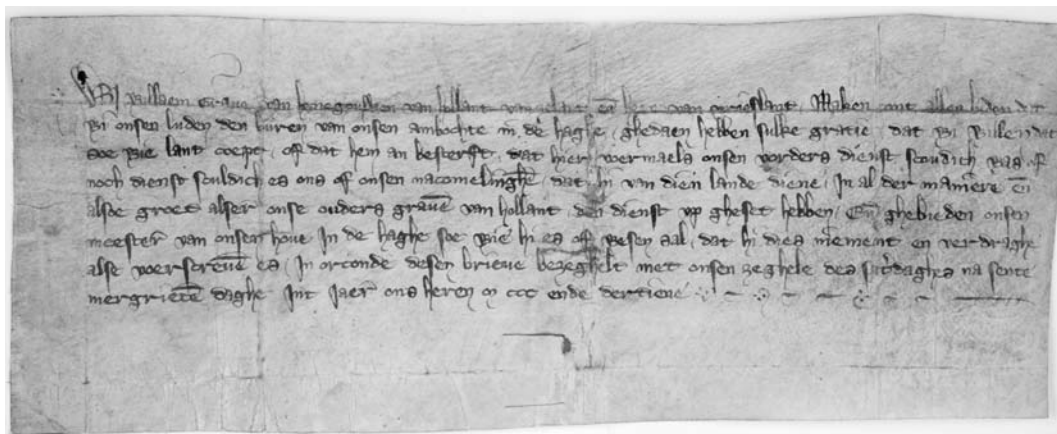 Wi willaem Grave van henegouwen van hollant van zelant en̄ here van vrieslant. Maken cont allen luden dat
wi onsen luden den buren van onsen ambochte in de haghe, ghedaen hebben sulke gratie, dat wi willen dat
soe wie lant coept, of dat hem an besterft, dat hier voermaels onsen vorders dienst sculdich was of
noch dienst sculdich es ons of onsen nacomelinghē, dat hi van dien lande diene, In al der manieren en̄
alsoe groet alser onse ouders gravē van hollant, den dienst vp gheset hebben, En̄ ghebieden onsen
meester van onsen hove In de haghe soe wie hi es of wesen sal, dat hi dies niement en verdraghe
alse voerscrevē es, In orconde desen brieve bezeghelt met onsen zeghele des sat'daghes na sente
mergrietē daghe Int jaer ons heren m ccc ende dertiene